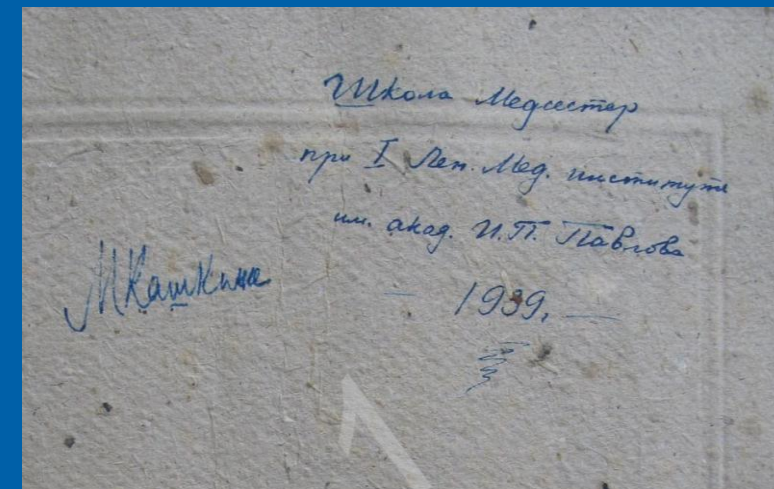 Школа Медсестер
при I Лен. Мед. институте
им. акад. И.П. Павлова
МКашкина
— 1939. —